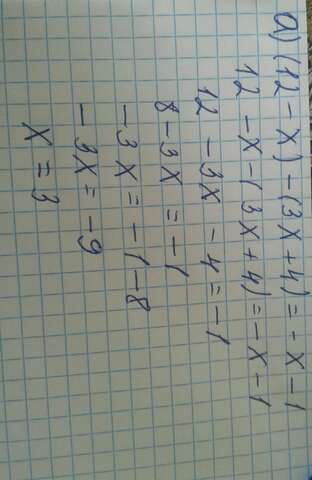 а) (12 - x) - (3x + 4) = - x - 1
12 - x - (3x + 4) = - x - 1
12 - 3x - 4 = - 1
8 - 3x = - 1
- 3x = - 1 - 8
- 3x = - 9
x = 3